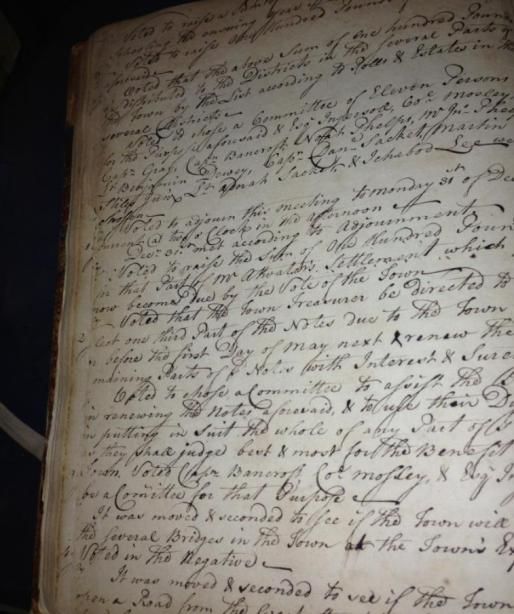 Voted to raise a
schooling the ensuing year
Voted to raise One Hundred Pounds
Voted that the above Sum of one hundred Pound
distributed to the Districts in the Several Parts of
the Town by the List according to Polls & Estates in the
Several Districts
Voted & chose a Committee of Eleven Persons
for the Purpose aforesaid & Esqr Ingersoll, Coll Mosley
Capt Gray, Capt Bancroft, Phelps, Mr Jno Phe
Lt Benjamin Dewey, Capt Danl Sacket, Martin
Lt Adnah Sacket & Ichabod Lee we
Chosen
Voted to adjourn this meeting to monday 31st of De
at Clock in the afternoon
Decr 31st met according to Adjournment
Voted to raise the Sum of One Hundred Poun
for that Part of Mr Atwater's Settlement which
now become due by the Vote of the Town
Voted that the Town Treasurer be directed to
lect one third Part of the Notes due to the Town
before the first Day of May next & renew the
maining Parts of sd Notes with Interest & Sure
Voted to chose a Committee to assist the
in renewing the Notes aforesaid, & to use their Di
in putting in Suit the whole of any Part of
they shall judge best & most for the Benefit
Town. Voted Capt Bancroft Coll Mosley, & Esqr In
be a Comittee for that Purpose
It was moved & seconded to see if the Town will
the Several Bridges in the Town at the Town's Ex
Voted in the Negative
It was moved & seconded to see if the Town
open a Road from the